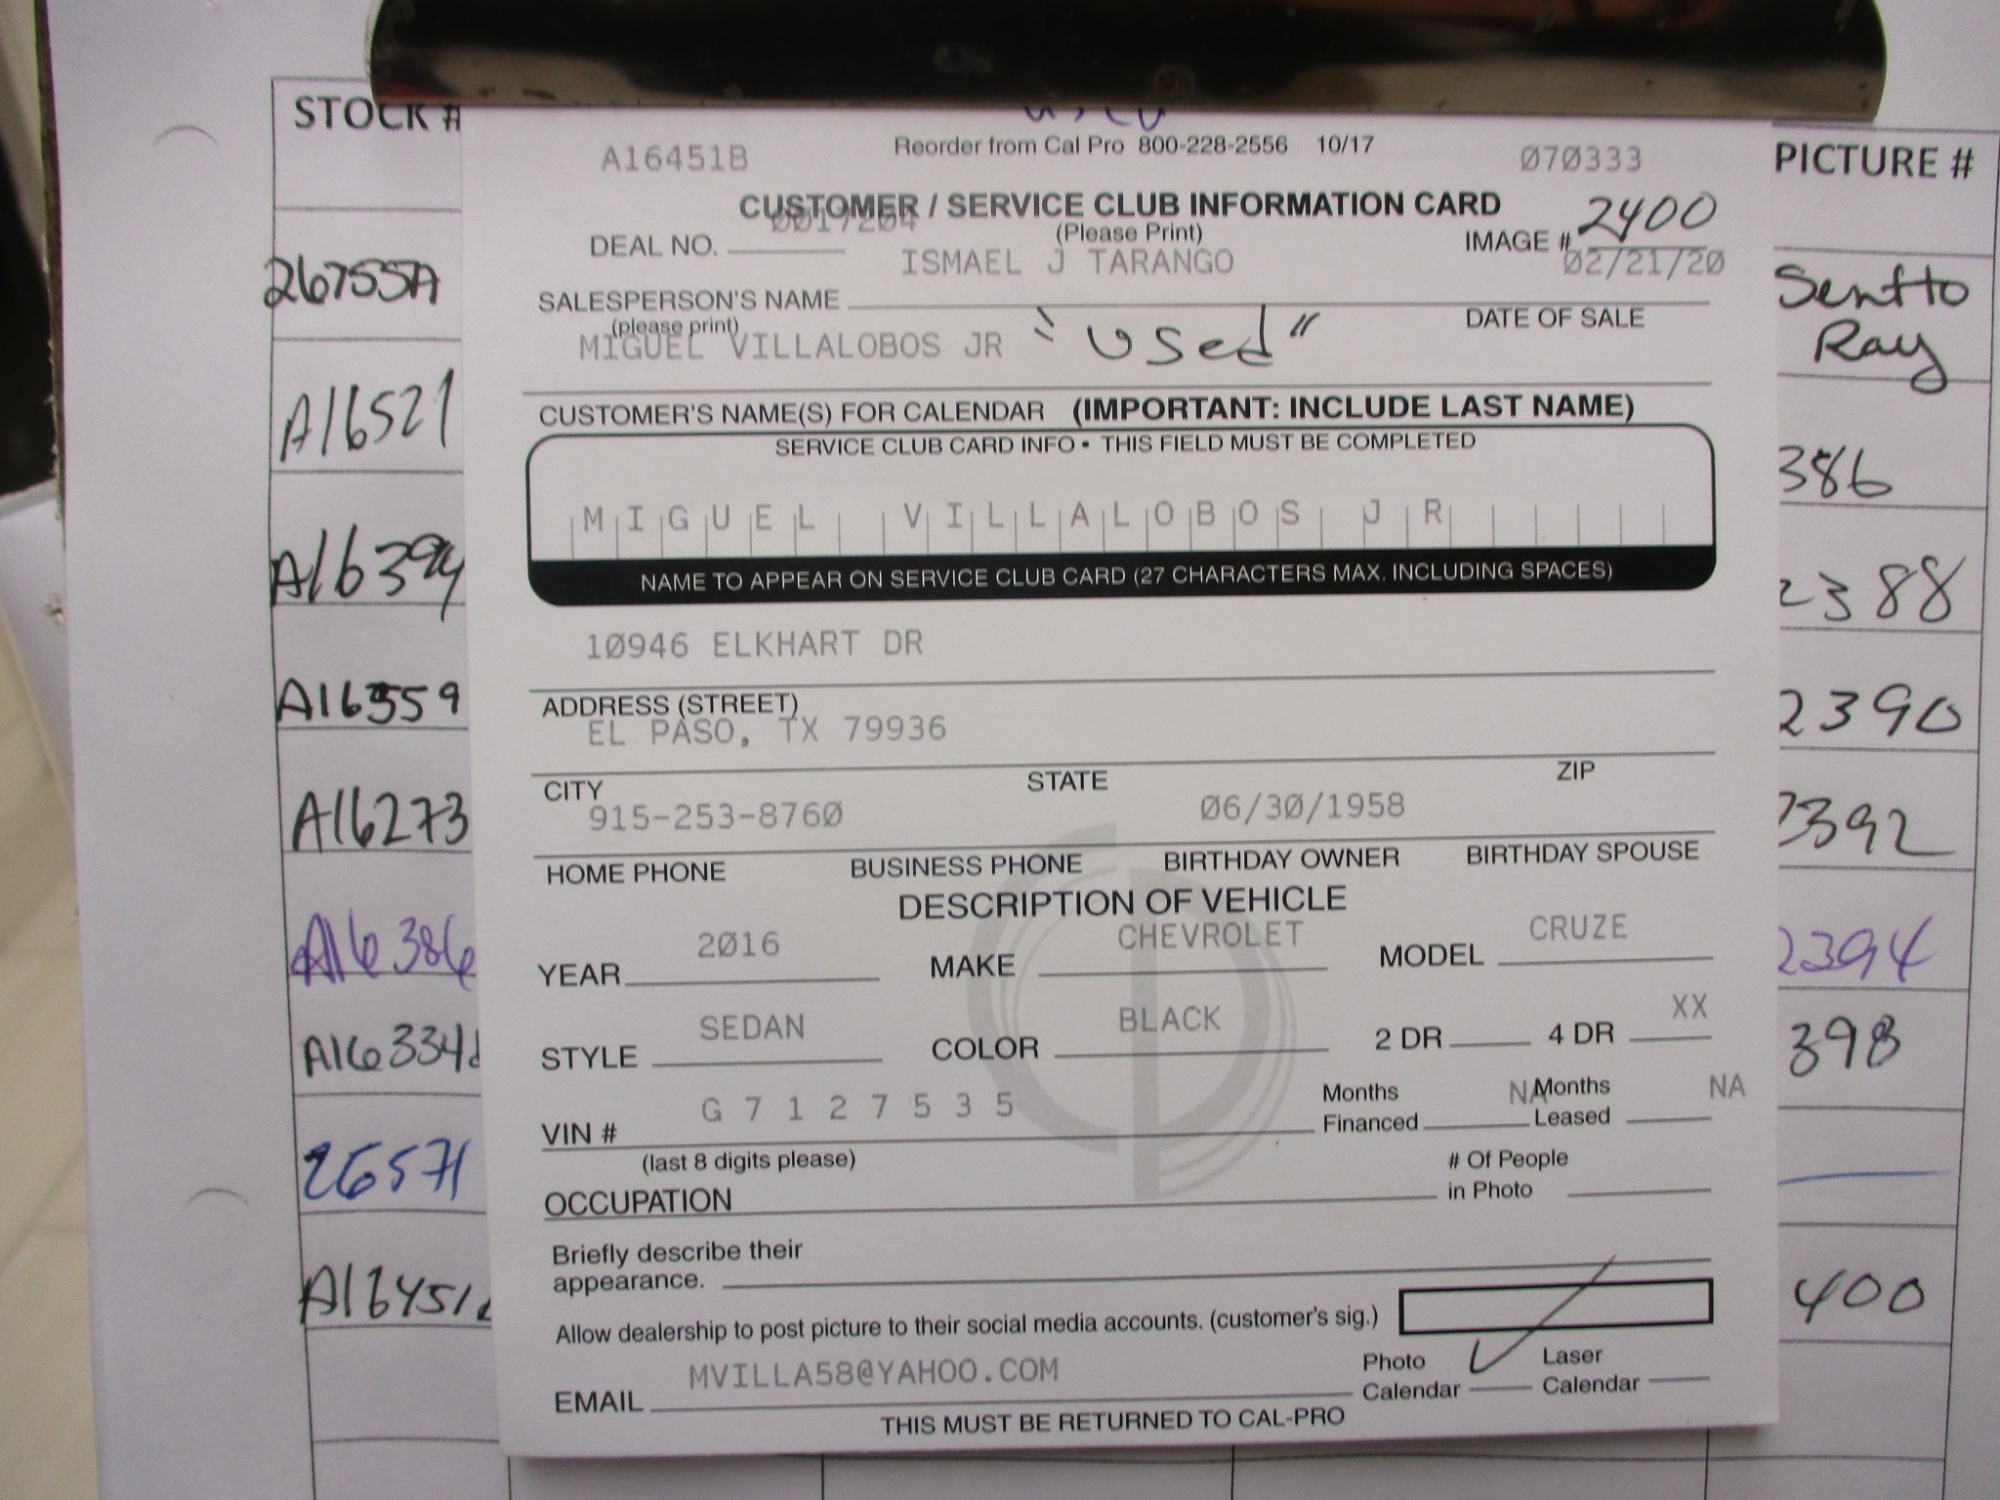 STOCK #
PICTURE #
26755A
Sent to
Ray
A16521
386
A16394
2388
A16359
2390
A16273
2392
A16386
2394
A16334
398
26571
A16451
400
A16451B
Reorder from Cal Pro 800-228-2556 10/17
070333
CUSTOMER / SERVICE CLUB INFORMATION CARD
(Please Print)
DEAL NO. 0017204
IMAGE # 2400
ISMAEL J TARANGO
02/21/20
SALESPERSON'S NAME
(please print)
DATE OF SALE
MIGUEL VILLALOBOS JR "Used"
CUSTOMER'S NAME(S) FOR CALENDAR (IMPORTANT: INCLUDE LAST NAME)
SERVICE CLUB CARD INFO • THIS FIELD MUST BE COMPLETED
MIGUEL VILLALOBOS JR
NAME TO APPEAR ON SERVICE CLUB CARD (27 CHARACTERS MAX. INCLUDING SPACES)
10946 ELKHART DR
ADDRESS (STREET)
EL PASO, TX 79936
CITY STATE ZIP
915-253-8760 06/30/1958
HOME PHONE BUSINESS PHONE BIRTHDAY OWNER BIRTHDAY SPOUSE
DESCRIPTION OF VEHICLE
YEAR 2016 MAKE CHEVROLET MODEL CRUZE
STYLE SEDAN COLOR BLACK 2 DR 4 DR XX
VIN # G7127535 Months Financed NA Months Leased NA
(last 8 digits please)
OCCUPATION # Of People in Photo
Briefly describe their
appearance.
Allow dealership to post picture to their social media accounts. (customer's sig.)
EMAIL MVILLA58@YAHOO.COM Photo Calendar Laser Calendar
THIS MUST BE RETURNED TO CAL-PRO